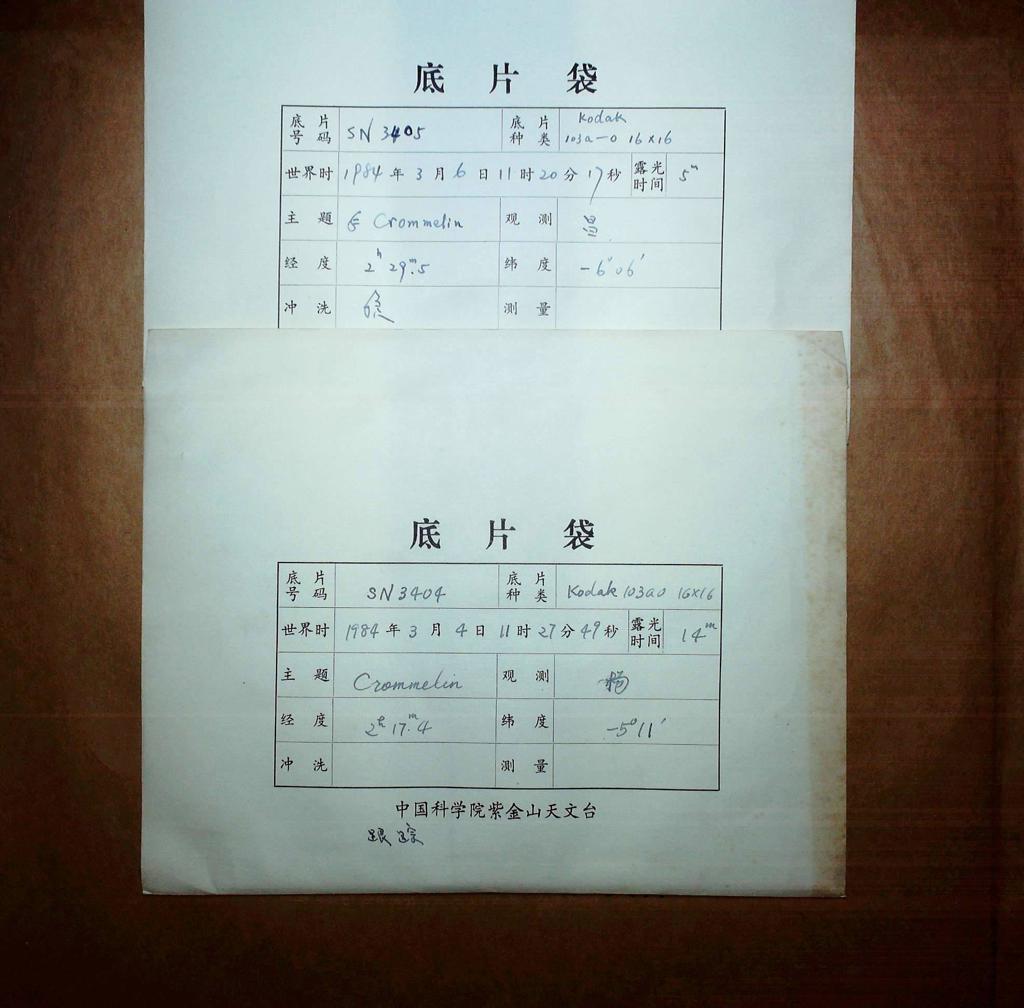 底片袋
底片号码 SN 3405 底片种类 Kodak 103a-O 16×16
世界时 1984年3月6日11时20分17秒 露光时间 5m
主题 Crommelin 观测 昌
经度 2h 29m.5 纬度 -6°06′
冲洗 测量
底片袋
底片号码 SN3404 底片种类 Kodak 103aO 16×16
世界时 1984年3月4日11时27分49秒 露光时间 14m
主题 Crommelin 观测 杨
经度 2h 17m.4 纬度 -5°11′
冲洗 测量
中国科学院紫金山天文台
跟踪